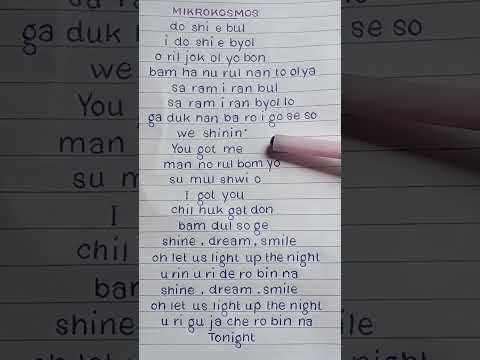 MIKROKOSMOS
do shi e bul
i do shi e byol
o ril jok ol yo bon
bam ha nu rul nan to ol ya
sa ram i ran bul
sa ram i ran byol lo
ga duk han ba ro i go se so
we shinin'
You got me
man no rul bom yo
su mul shwi o
I got you
chil huk gat don
bam dul so ge
shine, dream, smile
oh let us light up the night
u rin u ri de ro bin na
shine, dream, smile
oh let us light up the night
u ri gu ja che ro bin na
Tonight